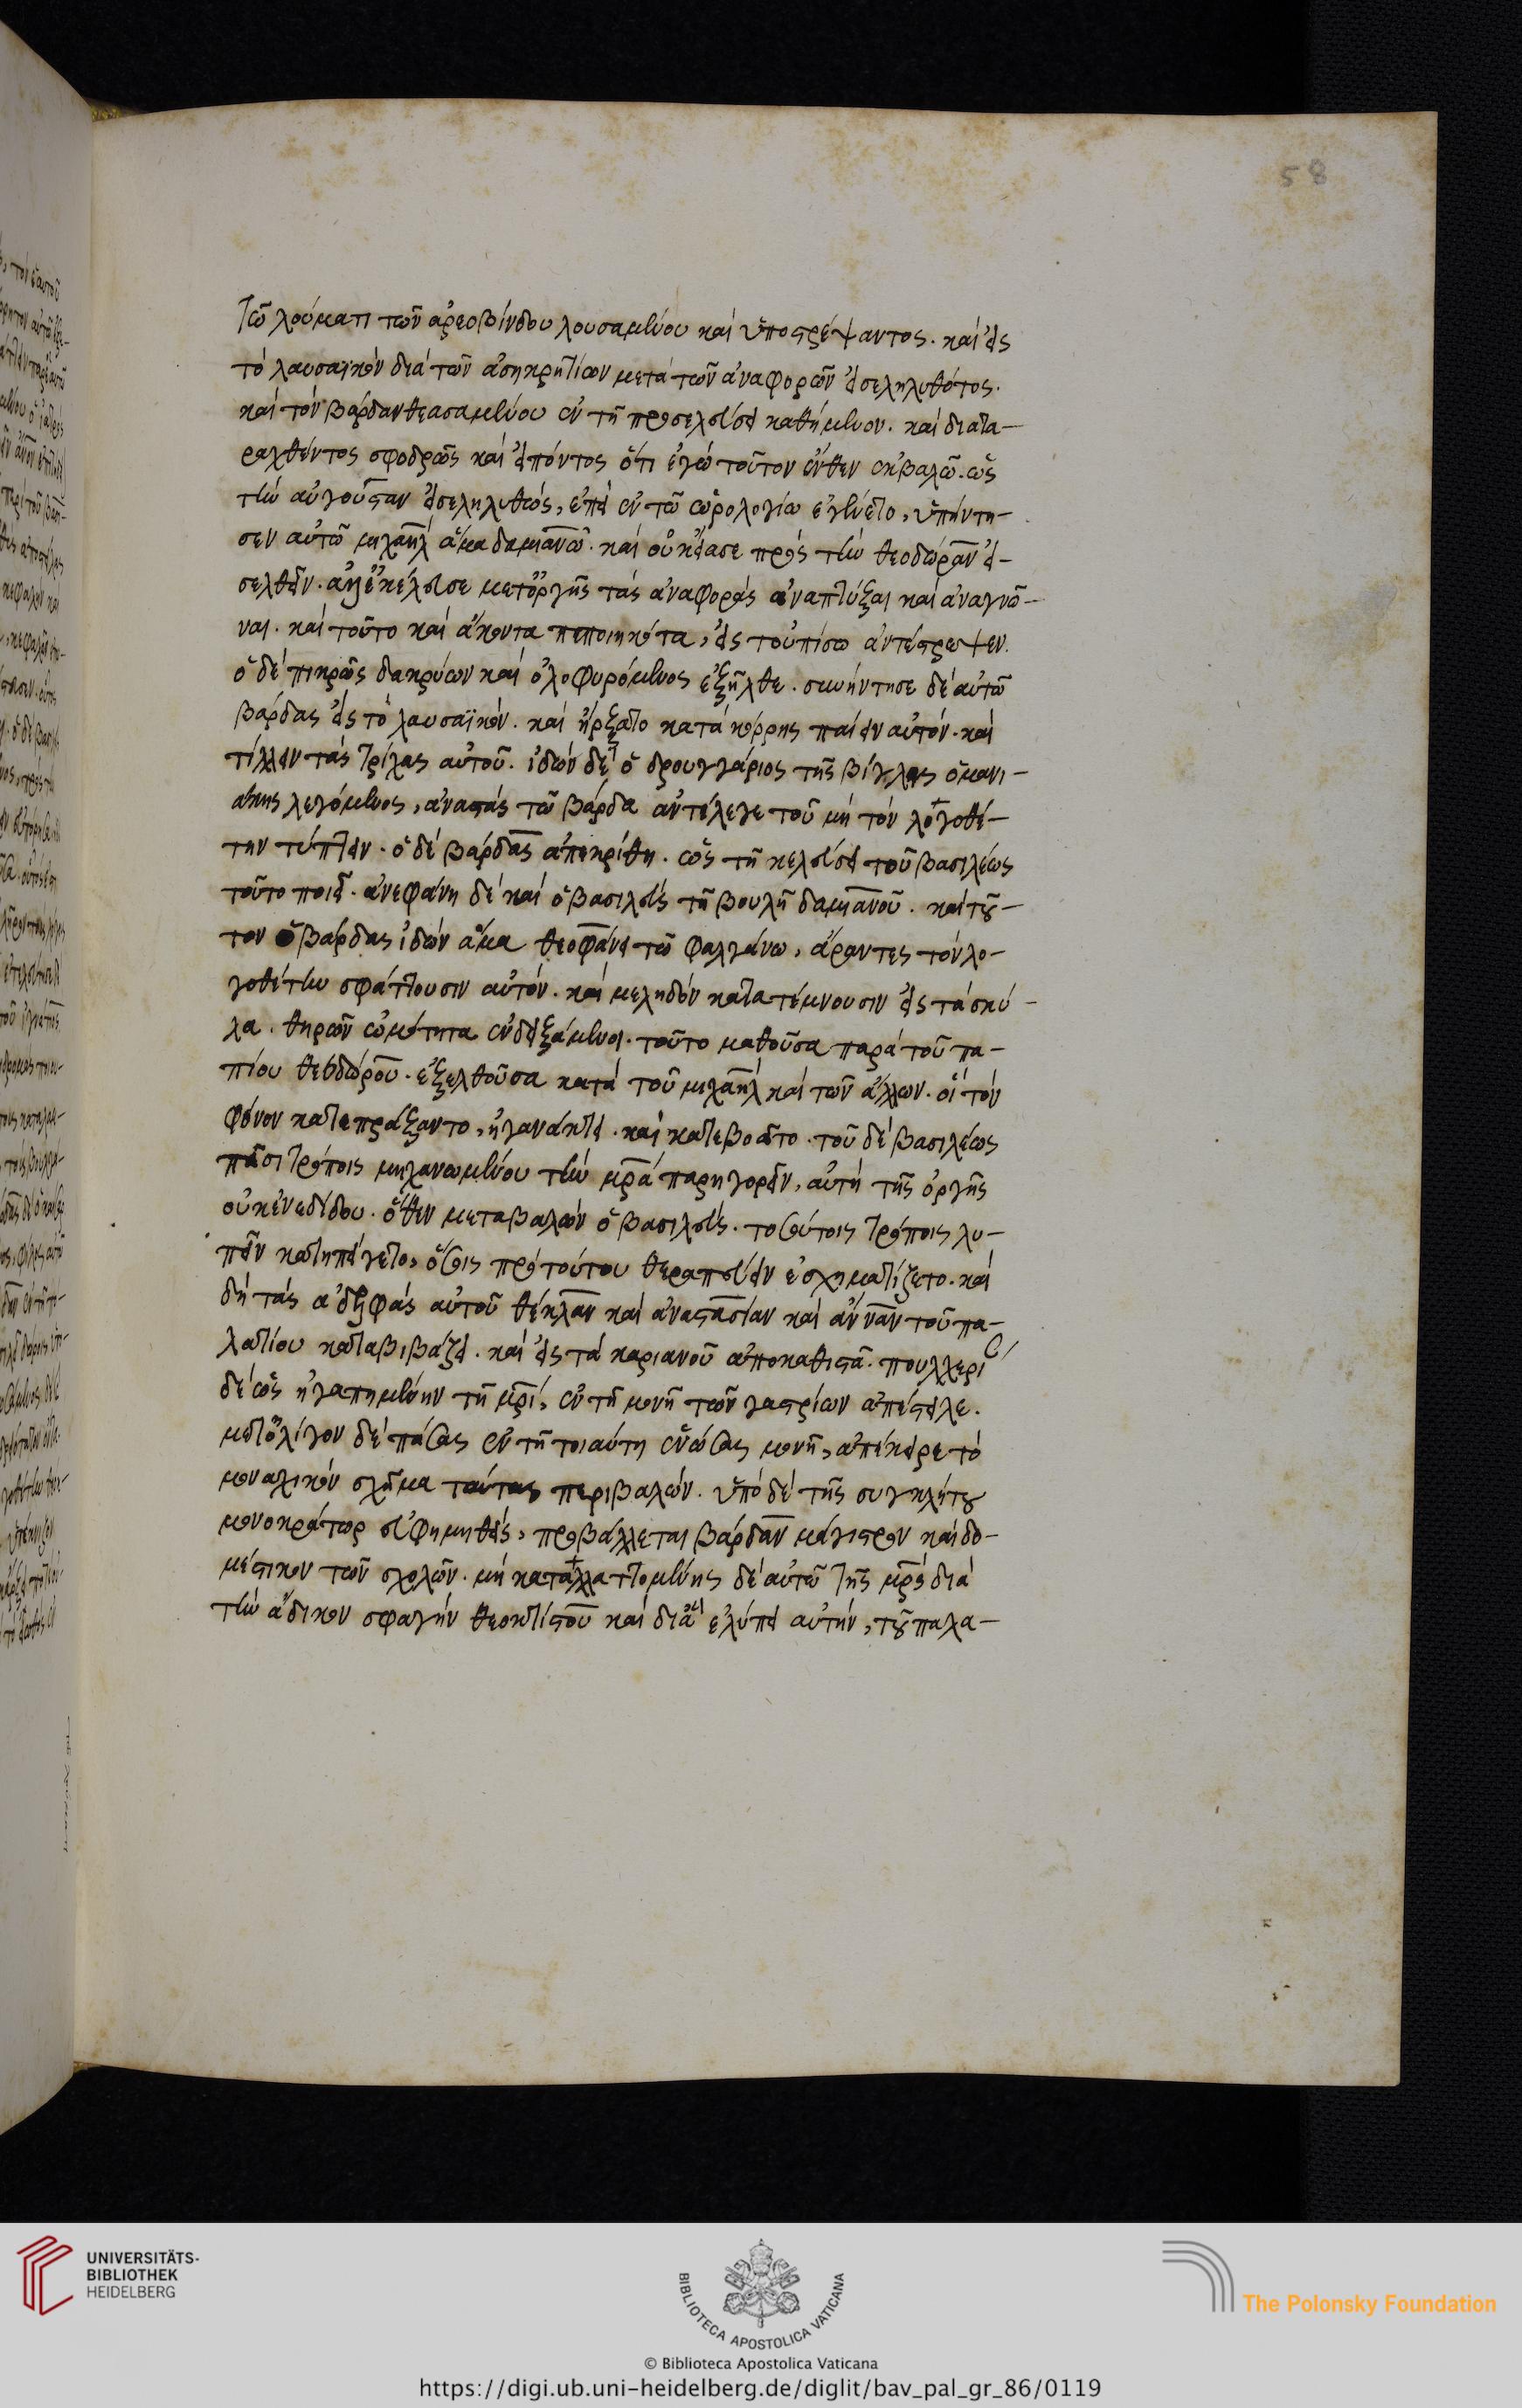 58
τῶ λούματι τῶν ἀρεοβίνδου λουσαμένου καὶ ὑποστρέψαντος. καὶ εἰς
τὸ λαυσαϊκὸν διὰ τῶν ἀσηκρητίων μετὰ τῶν ἀναφορῶν εἰσεληλυθότος.
καὶ τὸν βάρδαν θεασαμένου ἐν τῆ προσελεύσει καθήμενον. καὶ διατα–
ραχθέντος σφοδρῶς καὶ εἰπόντος ὅτι ἐγὼ τοῦτον ἔνθεν ἐκβαλῶ. ὡς
τὴν αὐγοῦσταν εἰσεληλυθὼς, ἐπεὶ ἐν τῶ ὡρολογίω ἐγένετο, ὑπήντη–
σεν αὐτῶ μιχαὴλ ἅμα δαμιανῶ. καὶ οὐκ εἴασε πρὸς τὴν θεοδώραν εἰ–
σελθεῖν. ἀλλ' ἐκέλευσε μετ' ὀργῆς τὰς ἀναφορὰς ἀναπτύξαι καὶ ἀναγνῶ–
ναι. καὶ τοῦτο καὶ ἄκοντα πεποιηκότα, εἰς τοὐπίσω ἀντέστρεψεν.
ὁ δὲ πικρῶς δακρύων καὶ ὀλοφυρόμενος ἐξῆλθε. συνήντησε δὲ αὐτῶ
βάρδας εἰς τὸ λαυσαϊκόν. καὶ ἤρξατο κατὰ κόρρης παίειν αὐτόν. καὶ
τίλλειν τὰς τρίχας αὐτοῦ. ἰδὼν δὲ ὁ δρουγγάριος τῆς βίγλης ὁ μανι–
άκης λεγόμενος, ἀναστὰς τῶ βάρδα ἀντέλεγε τοῦ μὴ τὸν λογοθέ–
την τύπτειν. ὁ δὲ βάρδας ἀπεκρίθη. ὡς τῆ κελεύσει τοῦ βασιλέως
τοῦτο ποιεῖ. ἀνεφάνη δὲ καὶ ὁ βασιλεὺς τῆ βουλῆ δαμιανοῦ. καὶ τοῦ–
τον ὁ βάρδας ἰδὼν ἅμα θεοφάνει τῶ φαλγάνω, ἄραντες τὸν λο–
γοθέτην σφάττουσιν αὐτόν. καὶ μεληδὸν κατατέμνουσιν εἰς τὰ σκύ–
λα. θηρῶν ὠμότητα ἐνδειξάμενοι. τοῦτο μαθοῦσα παρὰ τοῦ πα–
πίου θεοδώρου. ἐξελθοῦσα κατὰ τοῦ μιχαὴλ καὶ τῶν ἄλλων. οἳ τὸν
φόνον κατεπράξαντο, ἠγανάκτει. καὶ κατεβοᾶτο. τοῦ δὲ βασιλέως
πᾶσι τρόποις μηχανωμένου τὴν μρα παρηγορεῖν, αὐτὴ τῆς ὀργῆς
οὐκ ἐνεδίδου. ὅθεν μεταβαλὼν ὁ βασιλεὺς. τοσούτοις τρόποις λυ–
πεῖν κατηπείγετο, ὅσοις πρὸ τούτου θεραπεύειν ἐσχηματίζετο. καὶ
δὴ τὰς ἀδελφὰς αὐτοῦ θέκλαν καὶ ἀναστασίαν καὶ ἄνναν τοῦ πα–
λατίου καταβιβάζει. καὶ εἰς τὰ καριανοῦ ἀποκαθιστᾶ. πουλχερί
δὲ ὡς ἠγαπημένην τῆ μρι, ἐν τῆ μονῆ τῶν γαστρίων ἀπέστειλε.
μετ' ὀλίγον δὲ πάσας ἐν τῆ τοιαύτη ἑνώσας μονῆ, ἀπέκειρε τὸ
μοναχικὸν σχῆμα ταύτας περιβαλών. ὑπὸ δὲ τῆς συγκλήτου
μονοκράτωρ εὐφημηθεὶς, προβάλλεται βάρδαν μάγιστρον καὶ δο–
μέστικον τῶν σχολῶν. μὴ καταλλαττομένης δὲ αὐτῶ τῆς μρς διὰ
τὴν ἄδικον σφαγὴν θεοκτίστου καὶ διὰ ἐλύπει αὐτὴν, τοῦ παλα–
UNIVERSITÄTS-
BIBLIOTHEK
HEIDELBERG
BIBLIOTECA APOSTOLICA VATICANA
The Polonsky Foundation
© Biblioteca Apostolica Vaticana
https://digi.ub.uni-heidelberg.de/diglit/bav_pal_gr_86/0119